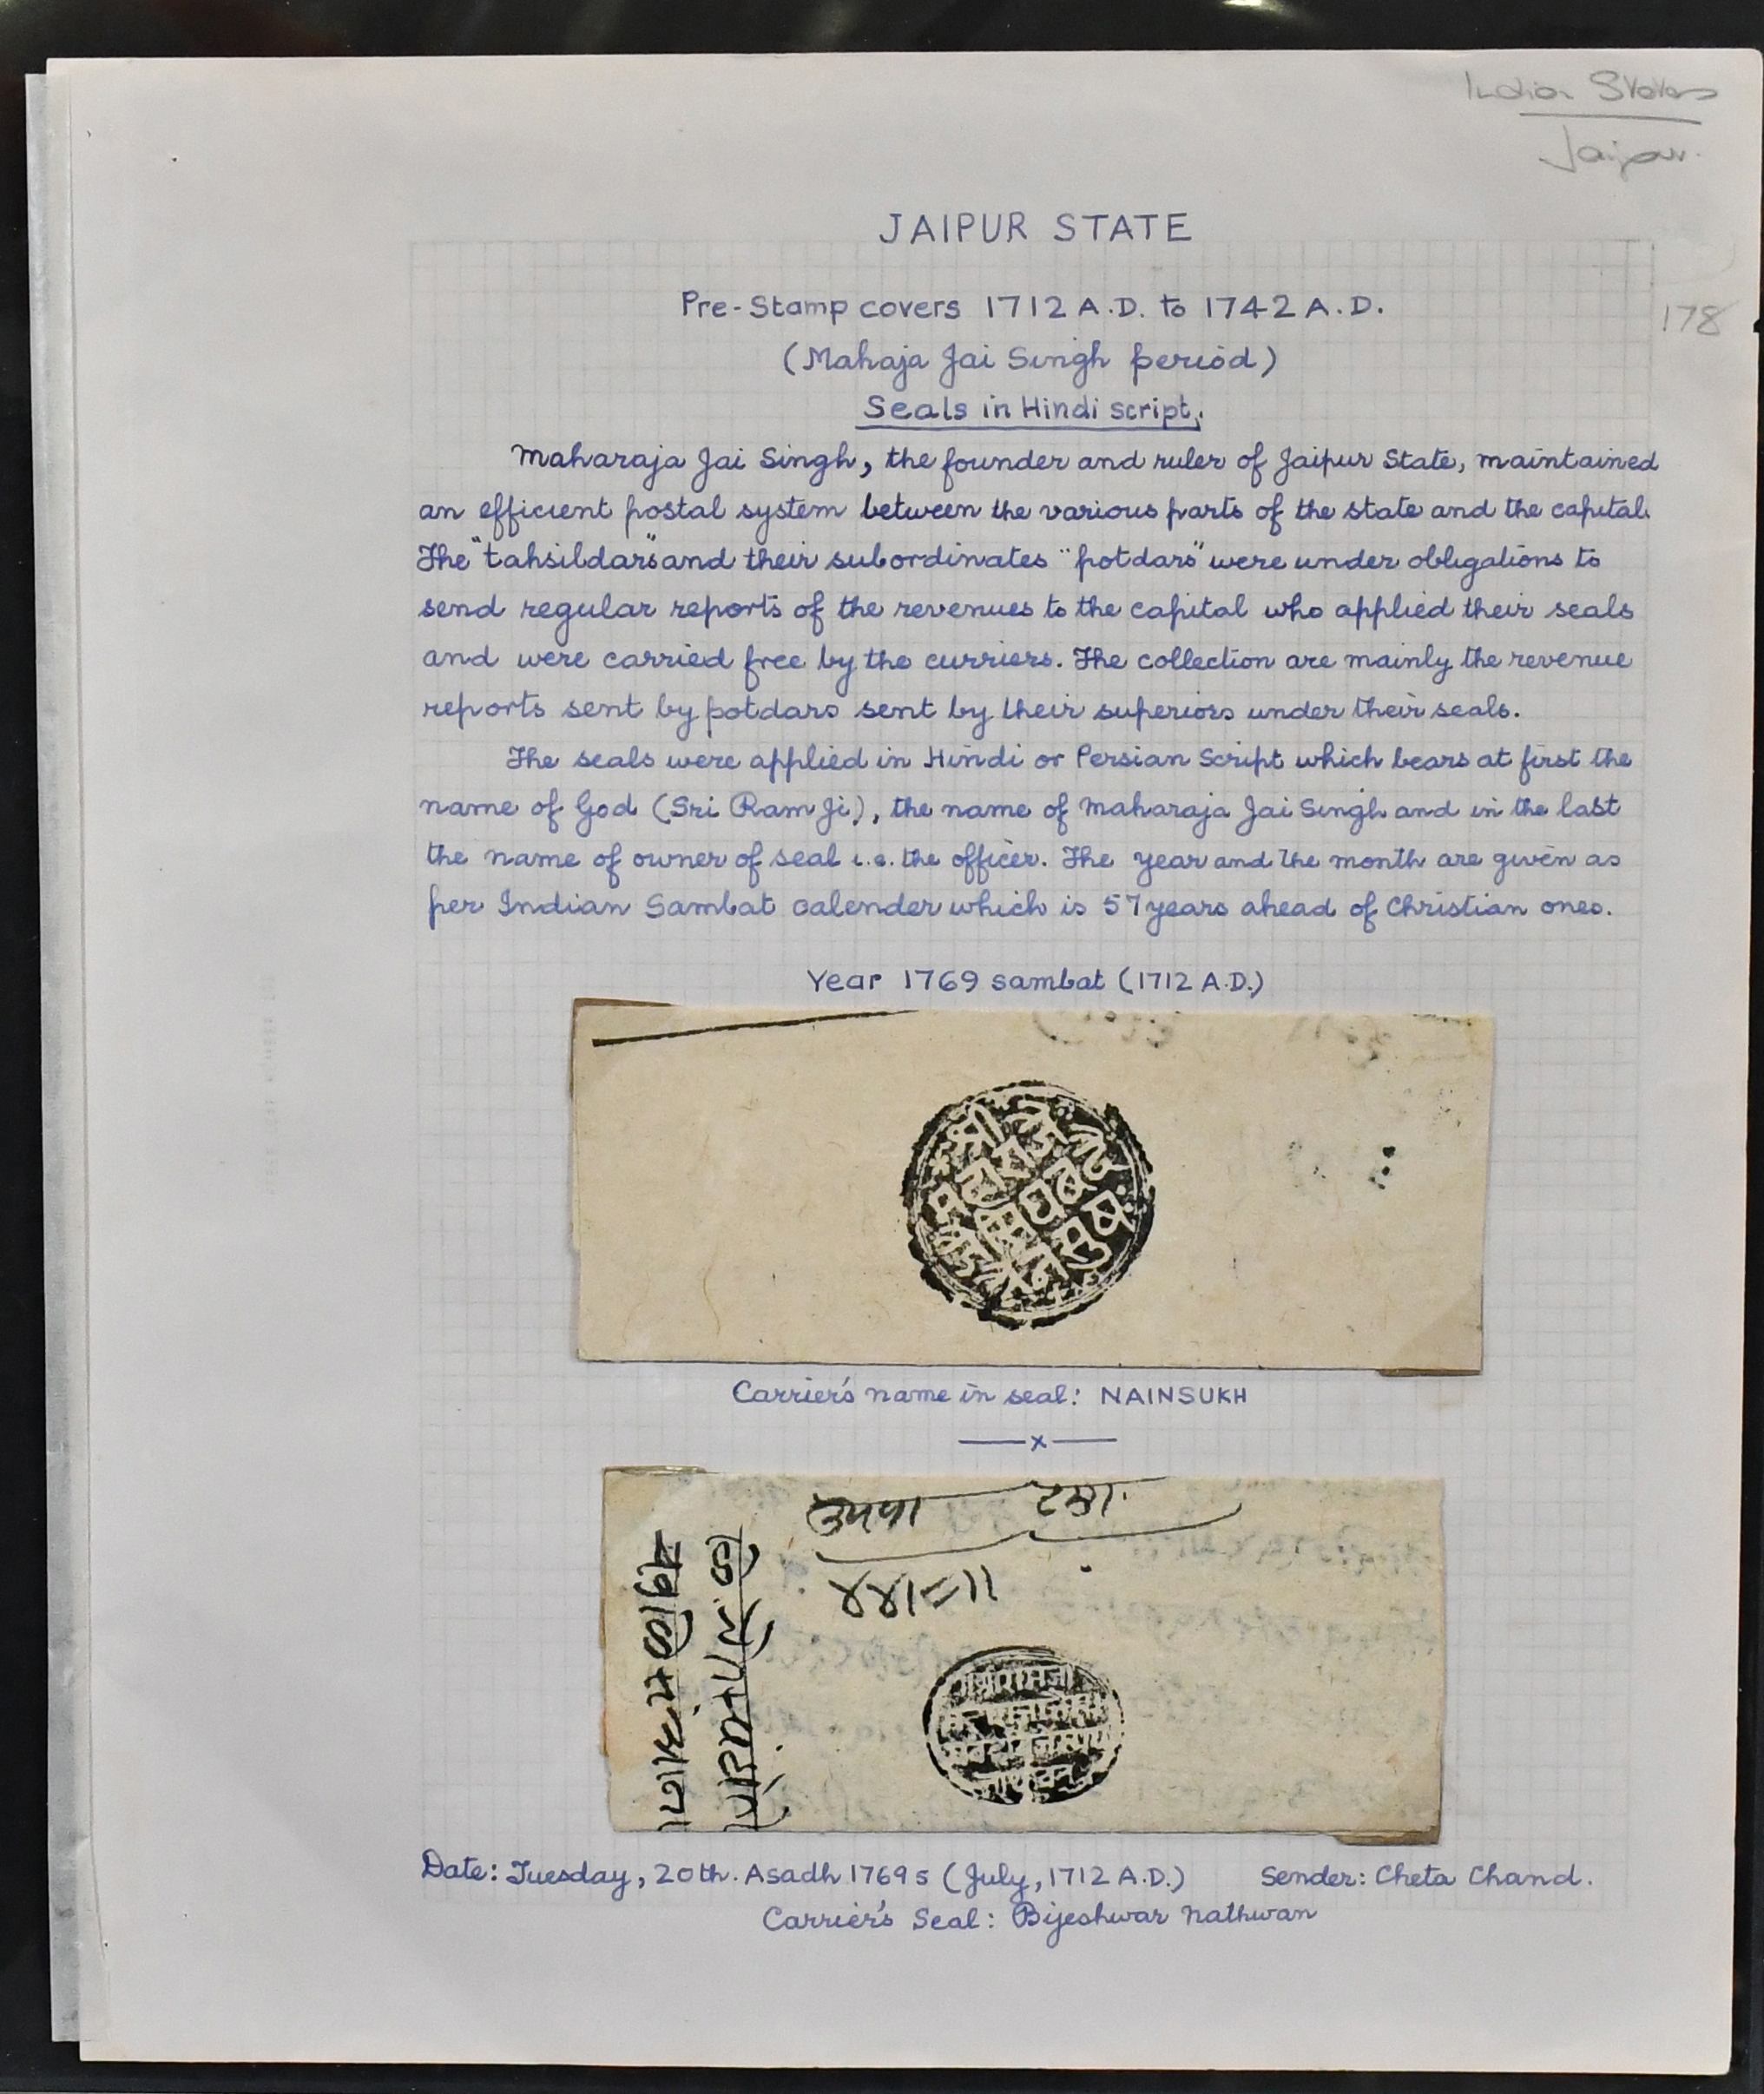 Indian States
Jaipur.
JAIPUR STATE
178
Pre-Stamp covers 1712 A.D. to 1742 A.D.
(Mahaja Jai Singh period)
Seals in Hindi script.
Maharaja Jai Singh, the founder and ruler of Jaipur State, maintained
an efficient postal system between the various parts of the state and the capital.
The "tahsildars" and their subordinates "potdars" were under obligations to
send regular reports of the revenues to the capital who applied their seals
and were carried free by the curriers. The collection are mainly the revenue
reports sent by potdars sent by their superiors under their seals.
The seals were applied in Hindi or Persian Script which bears at first the
name of God (Sri Ram Ji), the name of Maharaja Jai Singh and in the last
the name of owner of seal i.e. the officer. The year and the month are given as
per Indian Sambat calender which is 57 years ahead of Christian ones.
Year 1769 sambat (1712 A.D.)
श्री
Carrier's name in seal: NAINSUKH
x
४४।=॥
Date: Tuesday, 20th. Asadh 1769 s (July, 1712 A.D.) Sender: Cheta Chand.
Carrier's Seal: Bijeshwar Nathwan